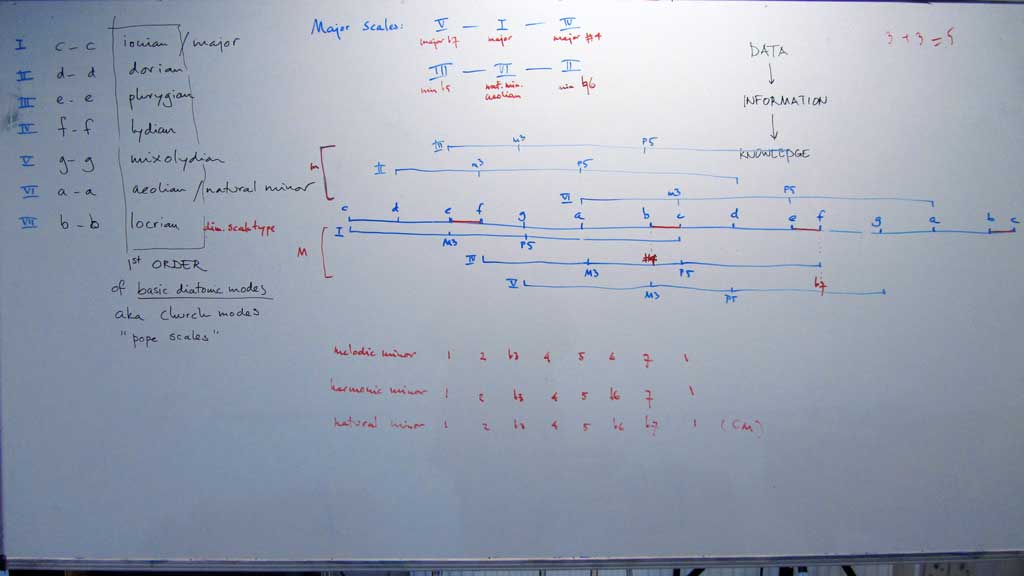 Major Scales: V — I — IV
major b7 major major #4
III — VI — II
min b5 nat. min. aeolian min b6
DATA
↓
INFORMATION
↓
KNOWLEDGE
3 + 3 = 5
I c - c ionian / major
II d - d dorian
III e - e phrygian
IV f - f lydian
V g - g mixolydian
VI a - a aeolian / natural minor
VII b - b locrian dim. scale type
1st ORDER
of basic diatonic modes
aka church modes
"pope scales"
m
III m3 P5
II m3 P5
VI m3 P5
c d e f g a b c d e f g a b c
M
I M3 P5
IV M3 #4 P5
V M3 P5 b7
melodic minor 1 2 b3 4 5 6 7 1
harmonic minor 1 2 b3 4 5 b6 7 1
natural minor 1 2 b3 4 5 b6 b7 1 (CM)